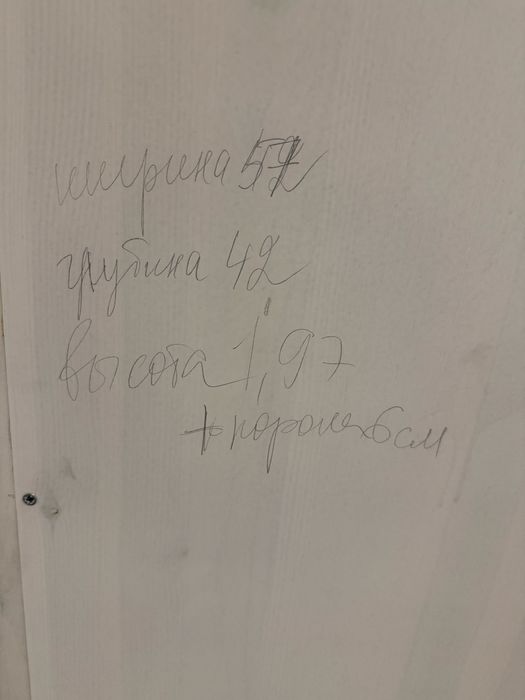 ширина 57
глубина 42
высота 1,97
+ порожек 6 см